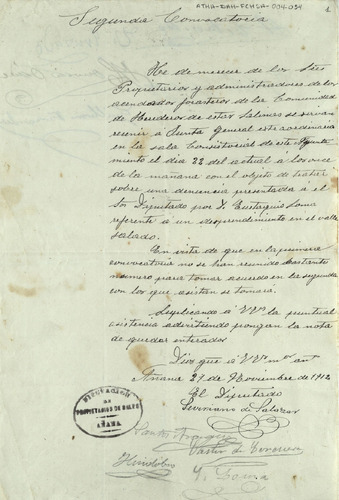 ATHA-DAH-FCHSA-004-054
1
Segunda Convocatoria
He de merecer de los Sres
Propietarios y administradores de los
acendados forasteros de la Comunidad
de Herederos de estas Salinas se sirvan
reunir á Junta General extraordinaria
en la sala Consistorial de este Ayunta
miento el dia 22 del actual á las once
de la mañana con el objeto de tratar
sobre una denuncia presentada á el
Sr Diputado por D. Eustaquio
referente á un desprendimiento en el valle
salado.
En vista de que en la primera
convocatoria no se han reunido bastante
numero para tomar acuerdo en la segunda
con los que asistan se tomará.
Suplicando á VV. la puntual
asistencia advirtiendo pongan la nota
de quedar enterados
Dios gue á VV. ms as
Añana 21 de Noviembre de 1912
El Diputado
de Salazar
DIPUTACION
DE
PROPIETARIOS DE SALES
AÑANA